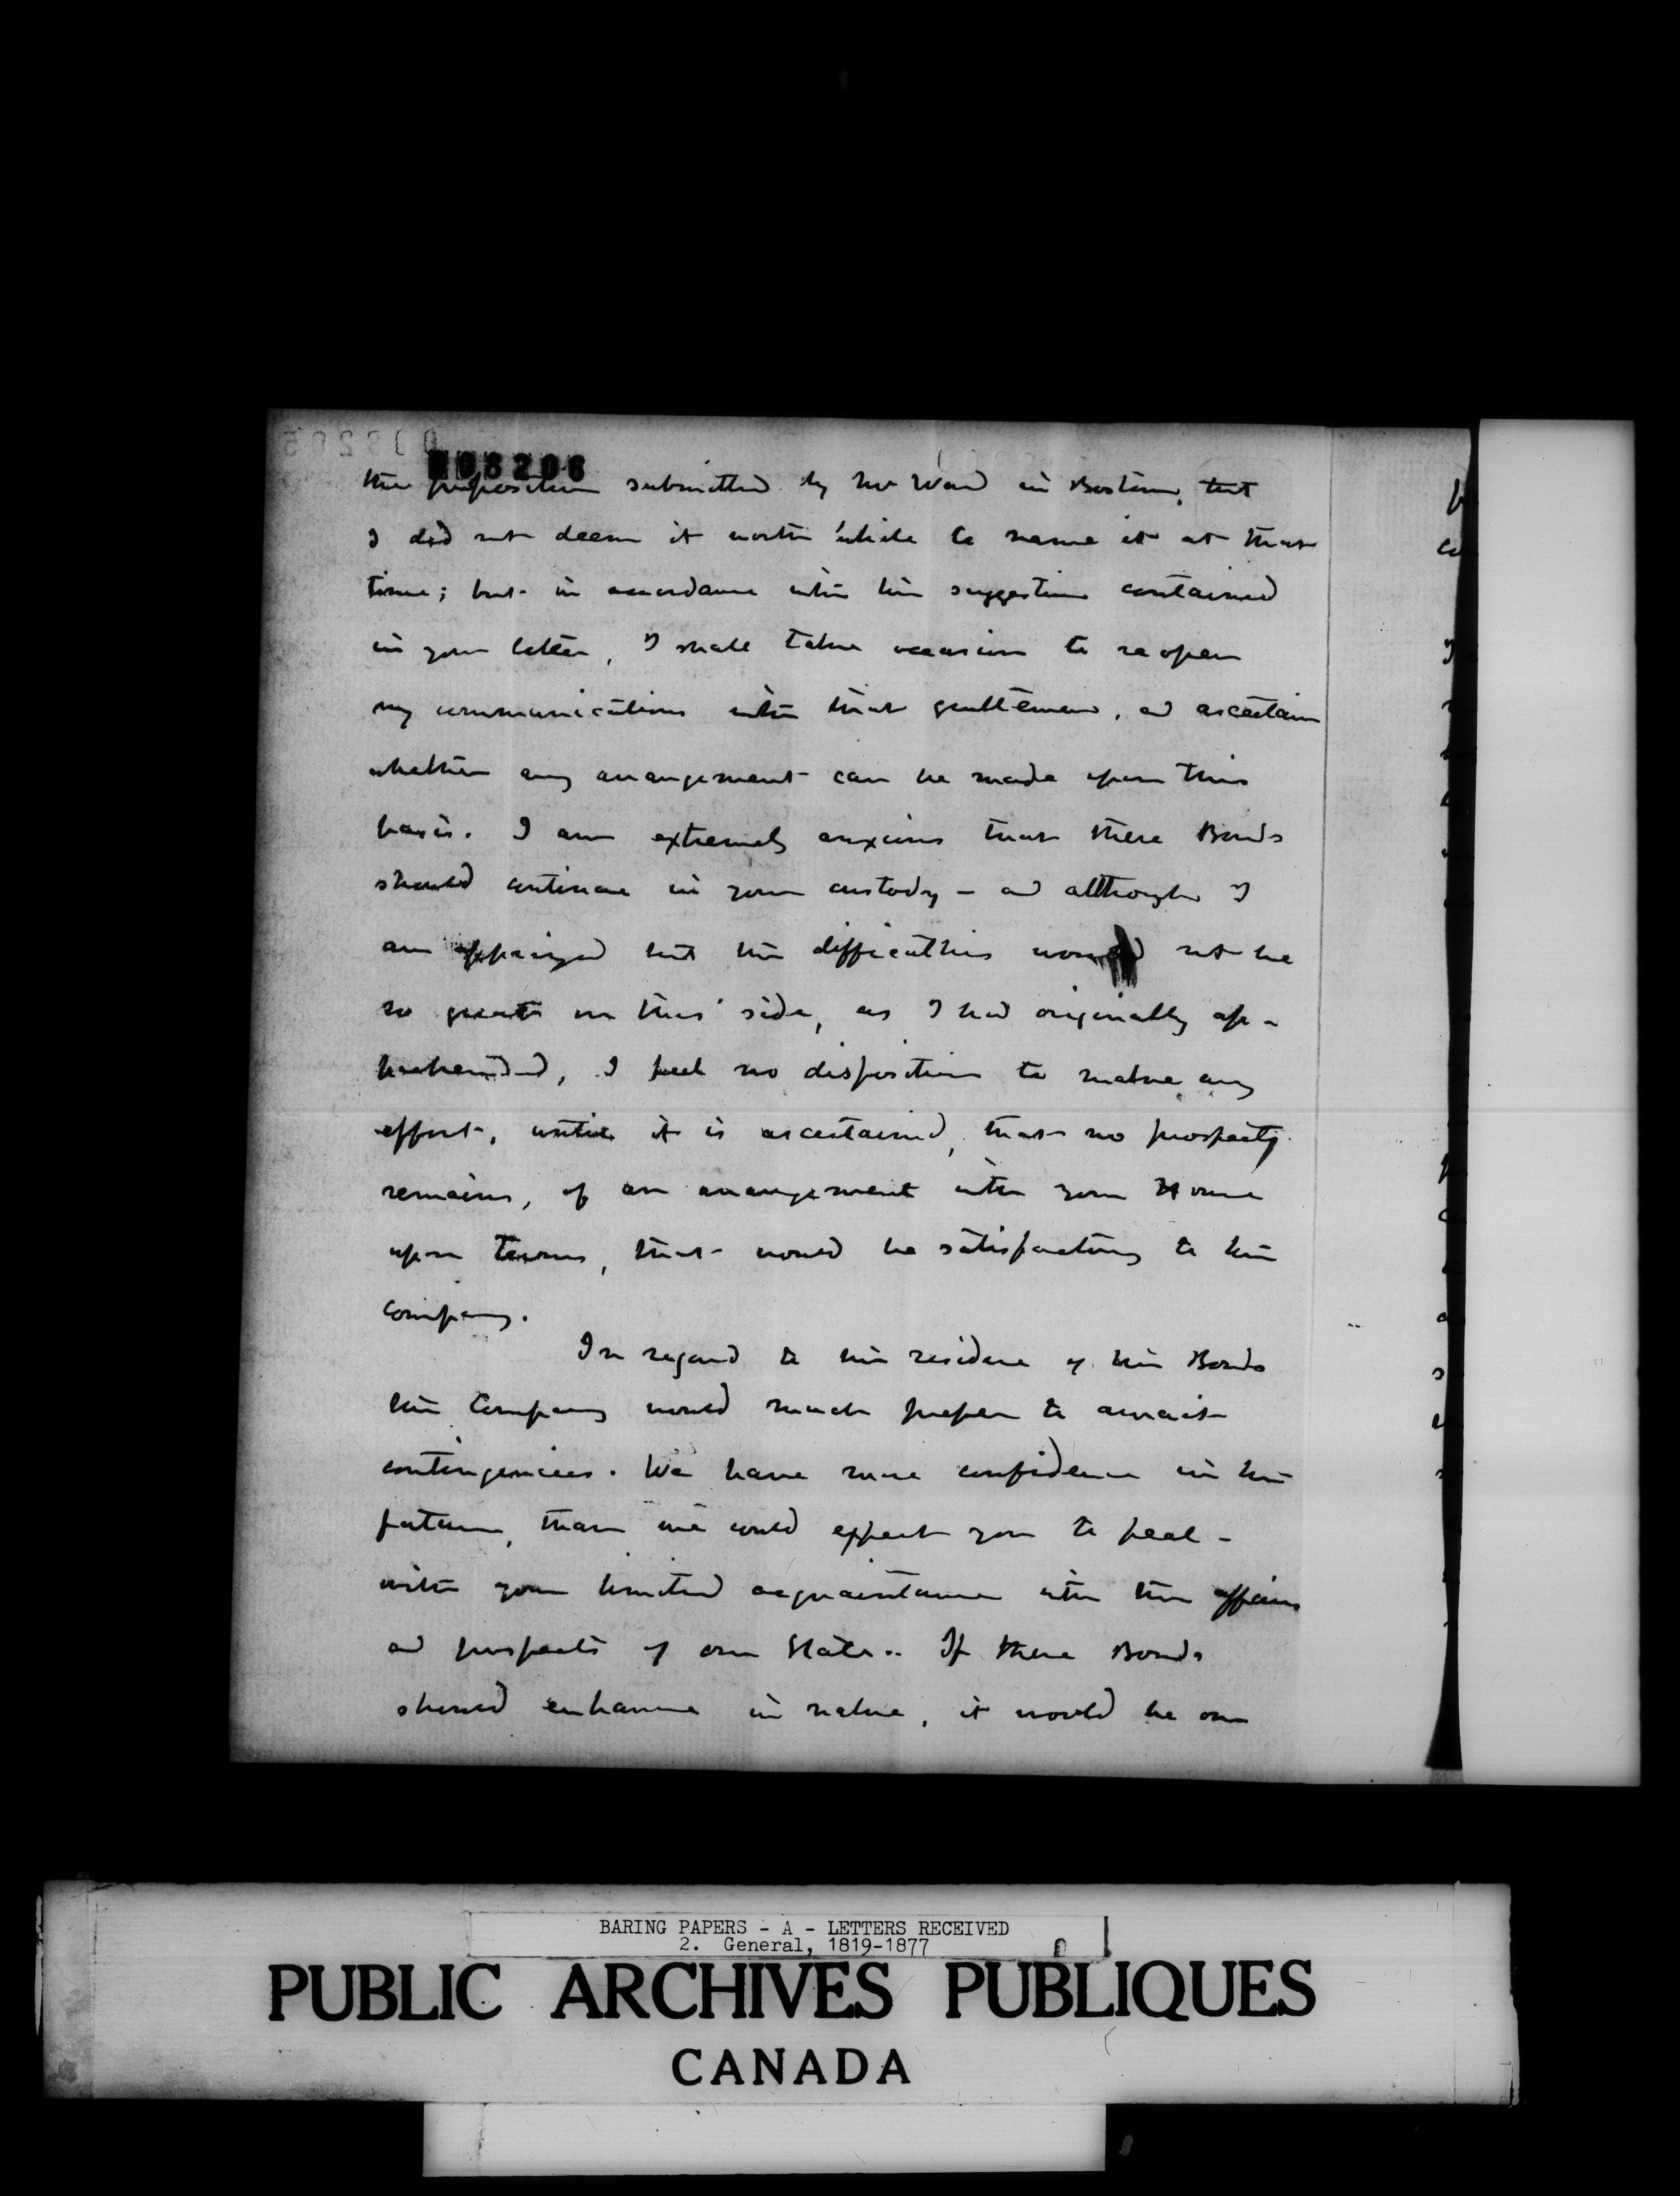 008206
the proposition submitted by Mr Ward in Boston, but
I did not deem it worth while to name it at that
time; but in accordance with the suggestion contained
in your letter, I shall take occasion to reopen
my communications with that gentleman, and ascertain
whether any arrangement can be made upon this
basis. I am extremely anxious that these Bonds
should continue in your custody - and although I
am apprized that the difficulties would not be
so great on this side, as I had originally ap-
prehended, I feel no disposition to make any
effort, until it is ascertained, that no prospect
remains, of an arrangement with your House
upon terms, that would be satisfactory to the
company.
In regard to the residue of the Bonds
the Company would much prefer to await
contingencies. We have more confidence in the
future, than we could expect you to feel -
with your limited acquaintance with the affairs
and prospects of our State. If these Bonds
should enhance in value, it would be our
BARING PAPERS - A - LETTERS RECEIVED
2. General, 1819-1877
PUBLIC ARCHIVES PUBLIQUES
CANADA